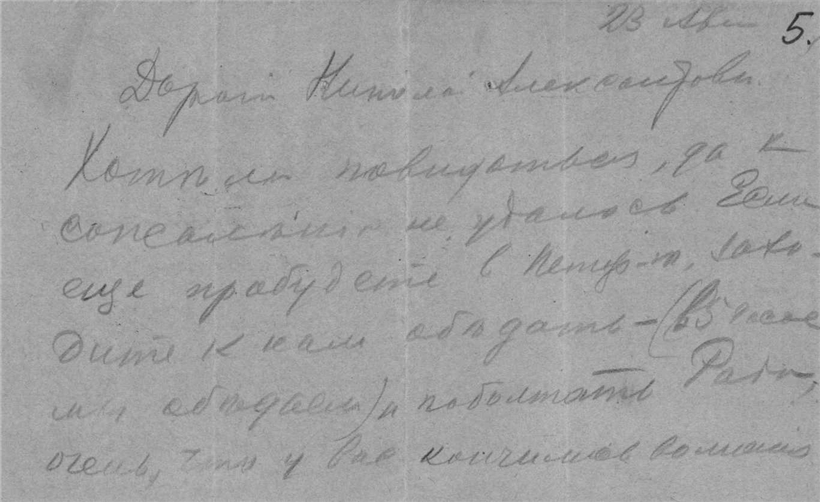 23 Авг 5.
Дорогой Николай Александрови
Хотѣли повидаться, да к
сожалѣнію не удалось Если
еще пробудете в Петер-гѣ, захо-
дите к нам обѣдать – (в 5 часов
мы обѣдаем) и поболтать Рады,
очень, что у вас кончилось